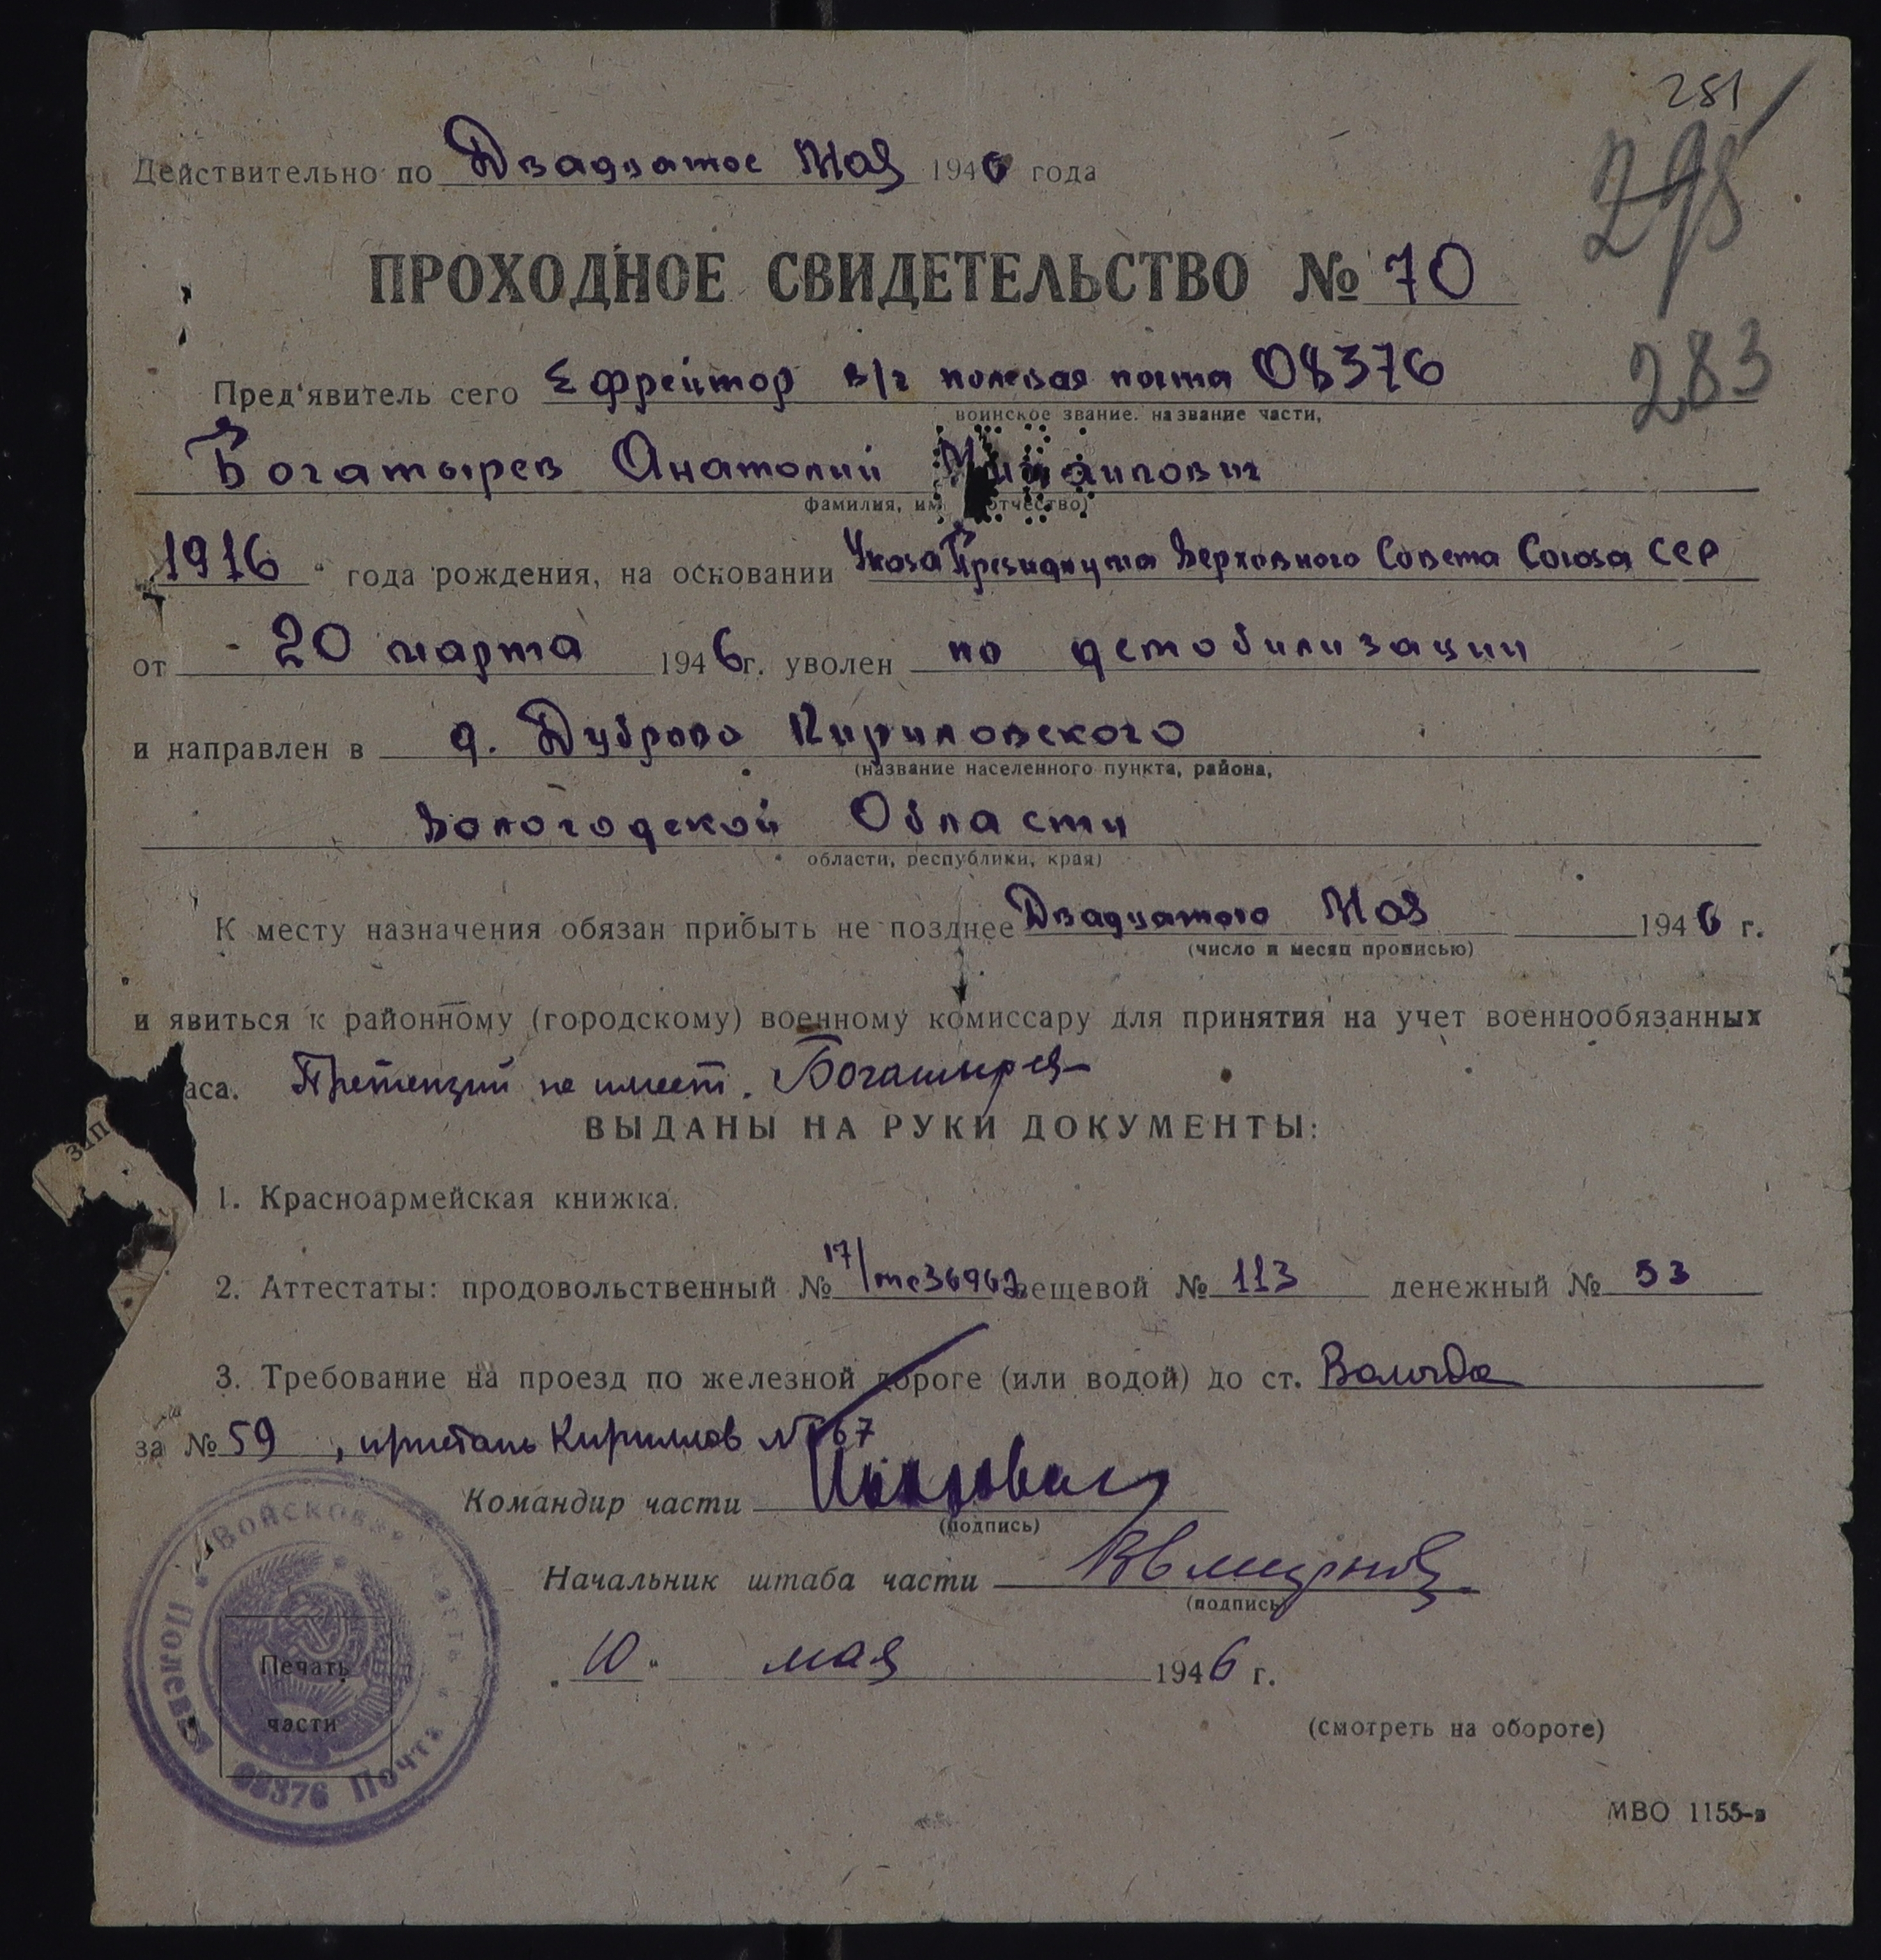 281
Действительно по Двадцатое Мая 1946 года
298
ПРОХОДНОЕ СВИДЕТЕЛЬСТВО № 70
283
Пред'явитель сего Ефрейтор в/ч полевая почта 08376
воинское звание. название части,
Богатырев Анатолий Михаилович
фамилия, им отчество)
1916 " года рождения, на основании Указа Президиума Верховного Совета Союза ССР
от - 20 марта 1946 г. уволен по демобилизации
и направлен в д. Дуброво Кириловского
(название населенного пункта, района,
Вологодской Области
области, республики, края)
К месту назначения обязан прибыть не позднее Двадцатого Мая 1946 г.
(число и месяц прописью)
и явиться к районному (городскому) военному комиссару для принятия на учет военнообязанных
запаса. Претензий не имеет. Богатырев
ВЫДАНЫ НА РУКИ ДОКУМЕНТЫ:
1. Красноармейская книжка.
2. Аттестаты: продовольственный № 17/ вещевой № 113 денежный № 53
3. Требование на проезд по железной дороге (или водой) до ст. Вологда
за № 59 , пристань Кириллов № 67
Командир части
(подпись)
Начальник штаба части
(подпись)
. 10 " мая 1946 г.
Войсковая часть
Полевая Почта 08376
Печать
части
(смотреть на обороте)
МВО 1155-в